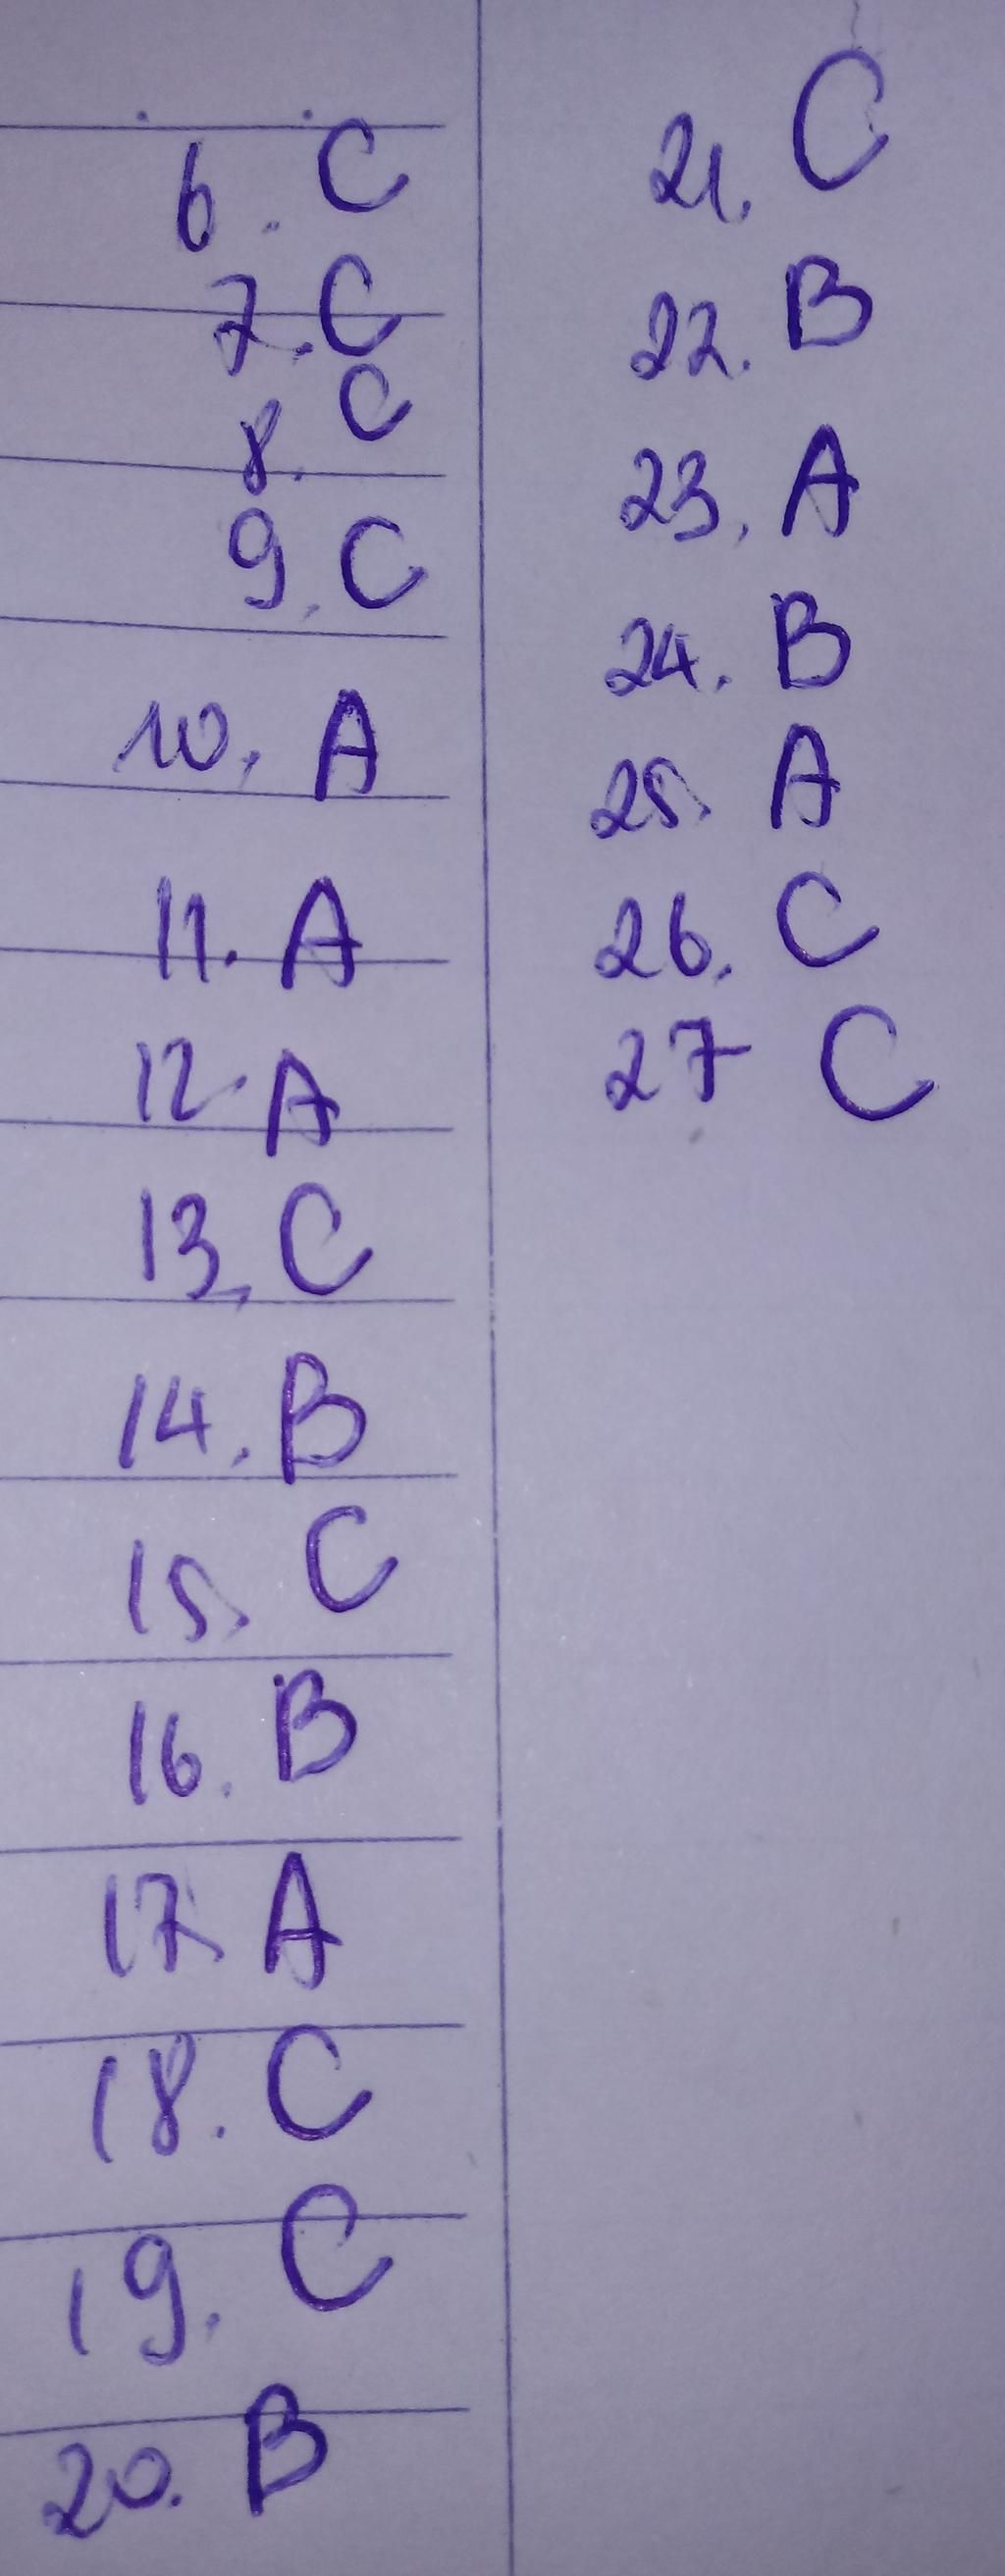 6. C
7. C
8. C
9. C
10. A
11. A
12. A
13. C
14. B
15. C
16. B
17. A
18. C
19. C
20. B
21. C
22. B
23. A
24. B
25. A
26. C
27 C